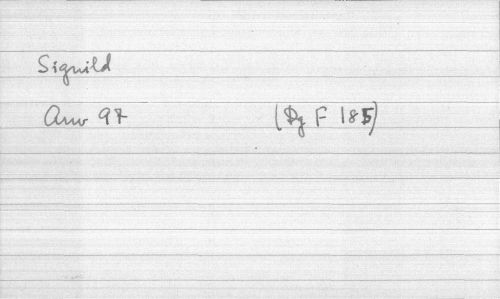 Signild
Arw 97 (Dg F 185)